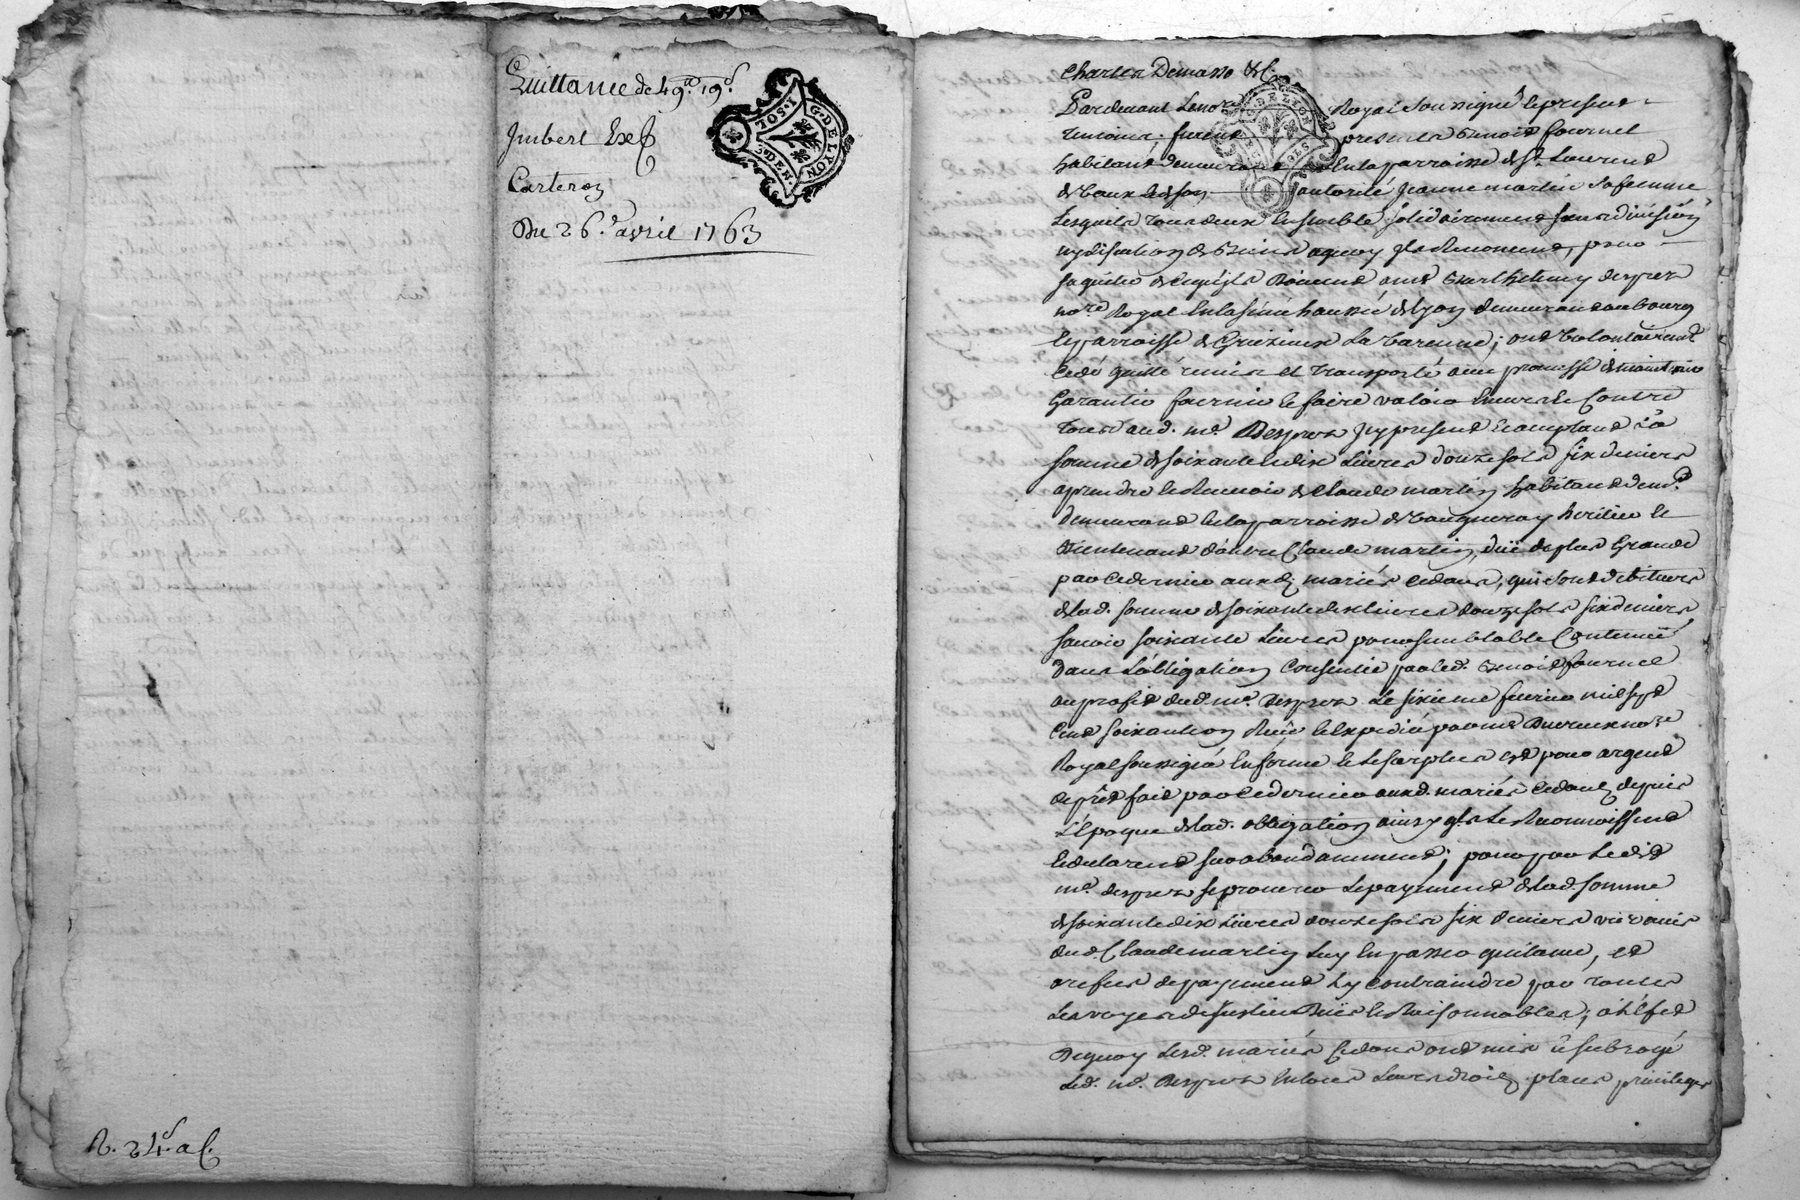 Quittance de 49ᵗᵗ 19ˢ
Imbert Ex
Carteron
Du 26.e avril 1763
G. DE LYON
1. SOL
3. DEN
R. 24ˢ a C.
Charles Demasso &c.
Pardevant Le nore Royal Soussigné le presens
temoins. furent presents Benoit fournel
habitant demeurant en la parroisse de St. Laurent
de Vaux led. son autorité Jeanne martin Sa femme
Lesquels tous deux Ensemble solidairement sans division
ny discution de Biens aquoy ils Renoncent, pour
Barthelemy despres
nore Royal En la sénéchaussée de Lyon demeurant au bourg
le parroisse de Grézieux La Varenne; ont volontairement
Cedé quitté remis et transporté avec promesse de maintenir
Garantir fournir le faire valoir Envers le Contre
tous aud. me. Despres Icy present acceptant La
somme de soixante le dix Livres douze sols six deniers
aprendre le Recevoir de Claude martin habitant
demeurant en la parroisse de Vaugneray heritier le
Bientenant d'autre Claude martin, düe de plus Grande
par Ce dernier aux d. mariés Cedans, qui sont debiteurs
de lad. somme de soixante dix livres douze sols six deniers
savoir soixante Livres pour semblable Contenüe
dans L'obligation Consentie par led. Benoit fournel
au profit dud. me. Despres Le sixieme fevrier mil sept
Cent soixante un Reçüe le Expediée par nore
Royal soussigné En forme le Le surplus est pour argent
de prêt fait par Ce dernier aux d. mariés Cedans depuis
L'époque de lad. obligation ainsy qils Le Reconnoissent
le declarent surabondamment; pour par Le dit
me. despres se procurer Le payement de lad. somme
de soixante dix Livres douze sols six deniers vis avis
dud. Claude martin Luy En passer quittance, et
a refus de payement L'y Contraindre par toutes
Les voyes de justice Dües le Raisonnables; à L'éfet
Dequoy Lesd. mariés Cedans ont mis & subrogé
Led. me. Despres En tous Leurs droits, places, privileges